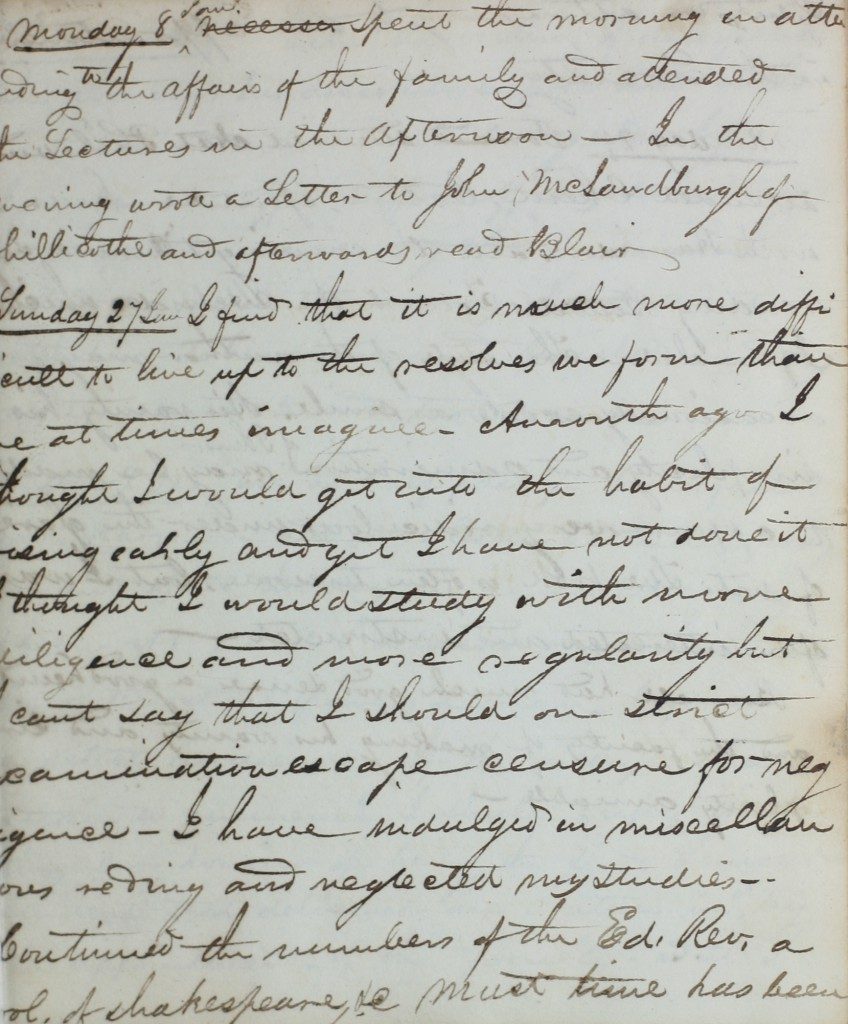 Monday 8 Jan. recesses spent the morning in atte
nding to the affairs of the family and attended
the Lectures in the Afternoon — In the
evening wrote a Letter to John McLandburgh of
hillicothe and afterwards read Blair
Sunday 27 Jan I find that it is much more diffi
cult to live up to the resolves we form than
we at times imagine – A month ago I
thought I would get into the habit of
rising eahly and yet I have not done it
I thought I would study with more
diligence and more regularity but
I cant say that I should on strict
examination escape censure for neg
ligence – I have indulged in miscellan
ous reding and neglected my studies –
Continued the numbers of the Ed. Rev. a
vol. of Shakespeare, &c Must time has been